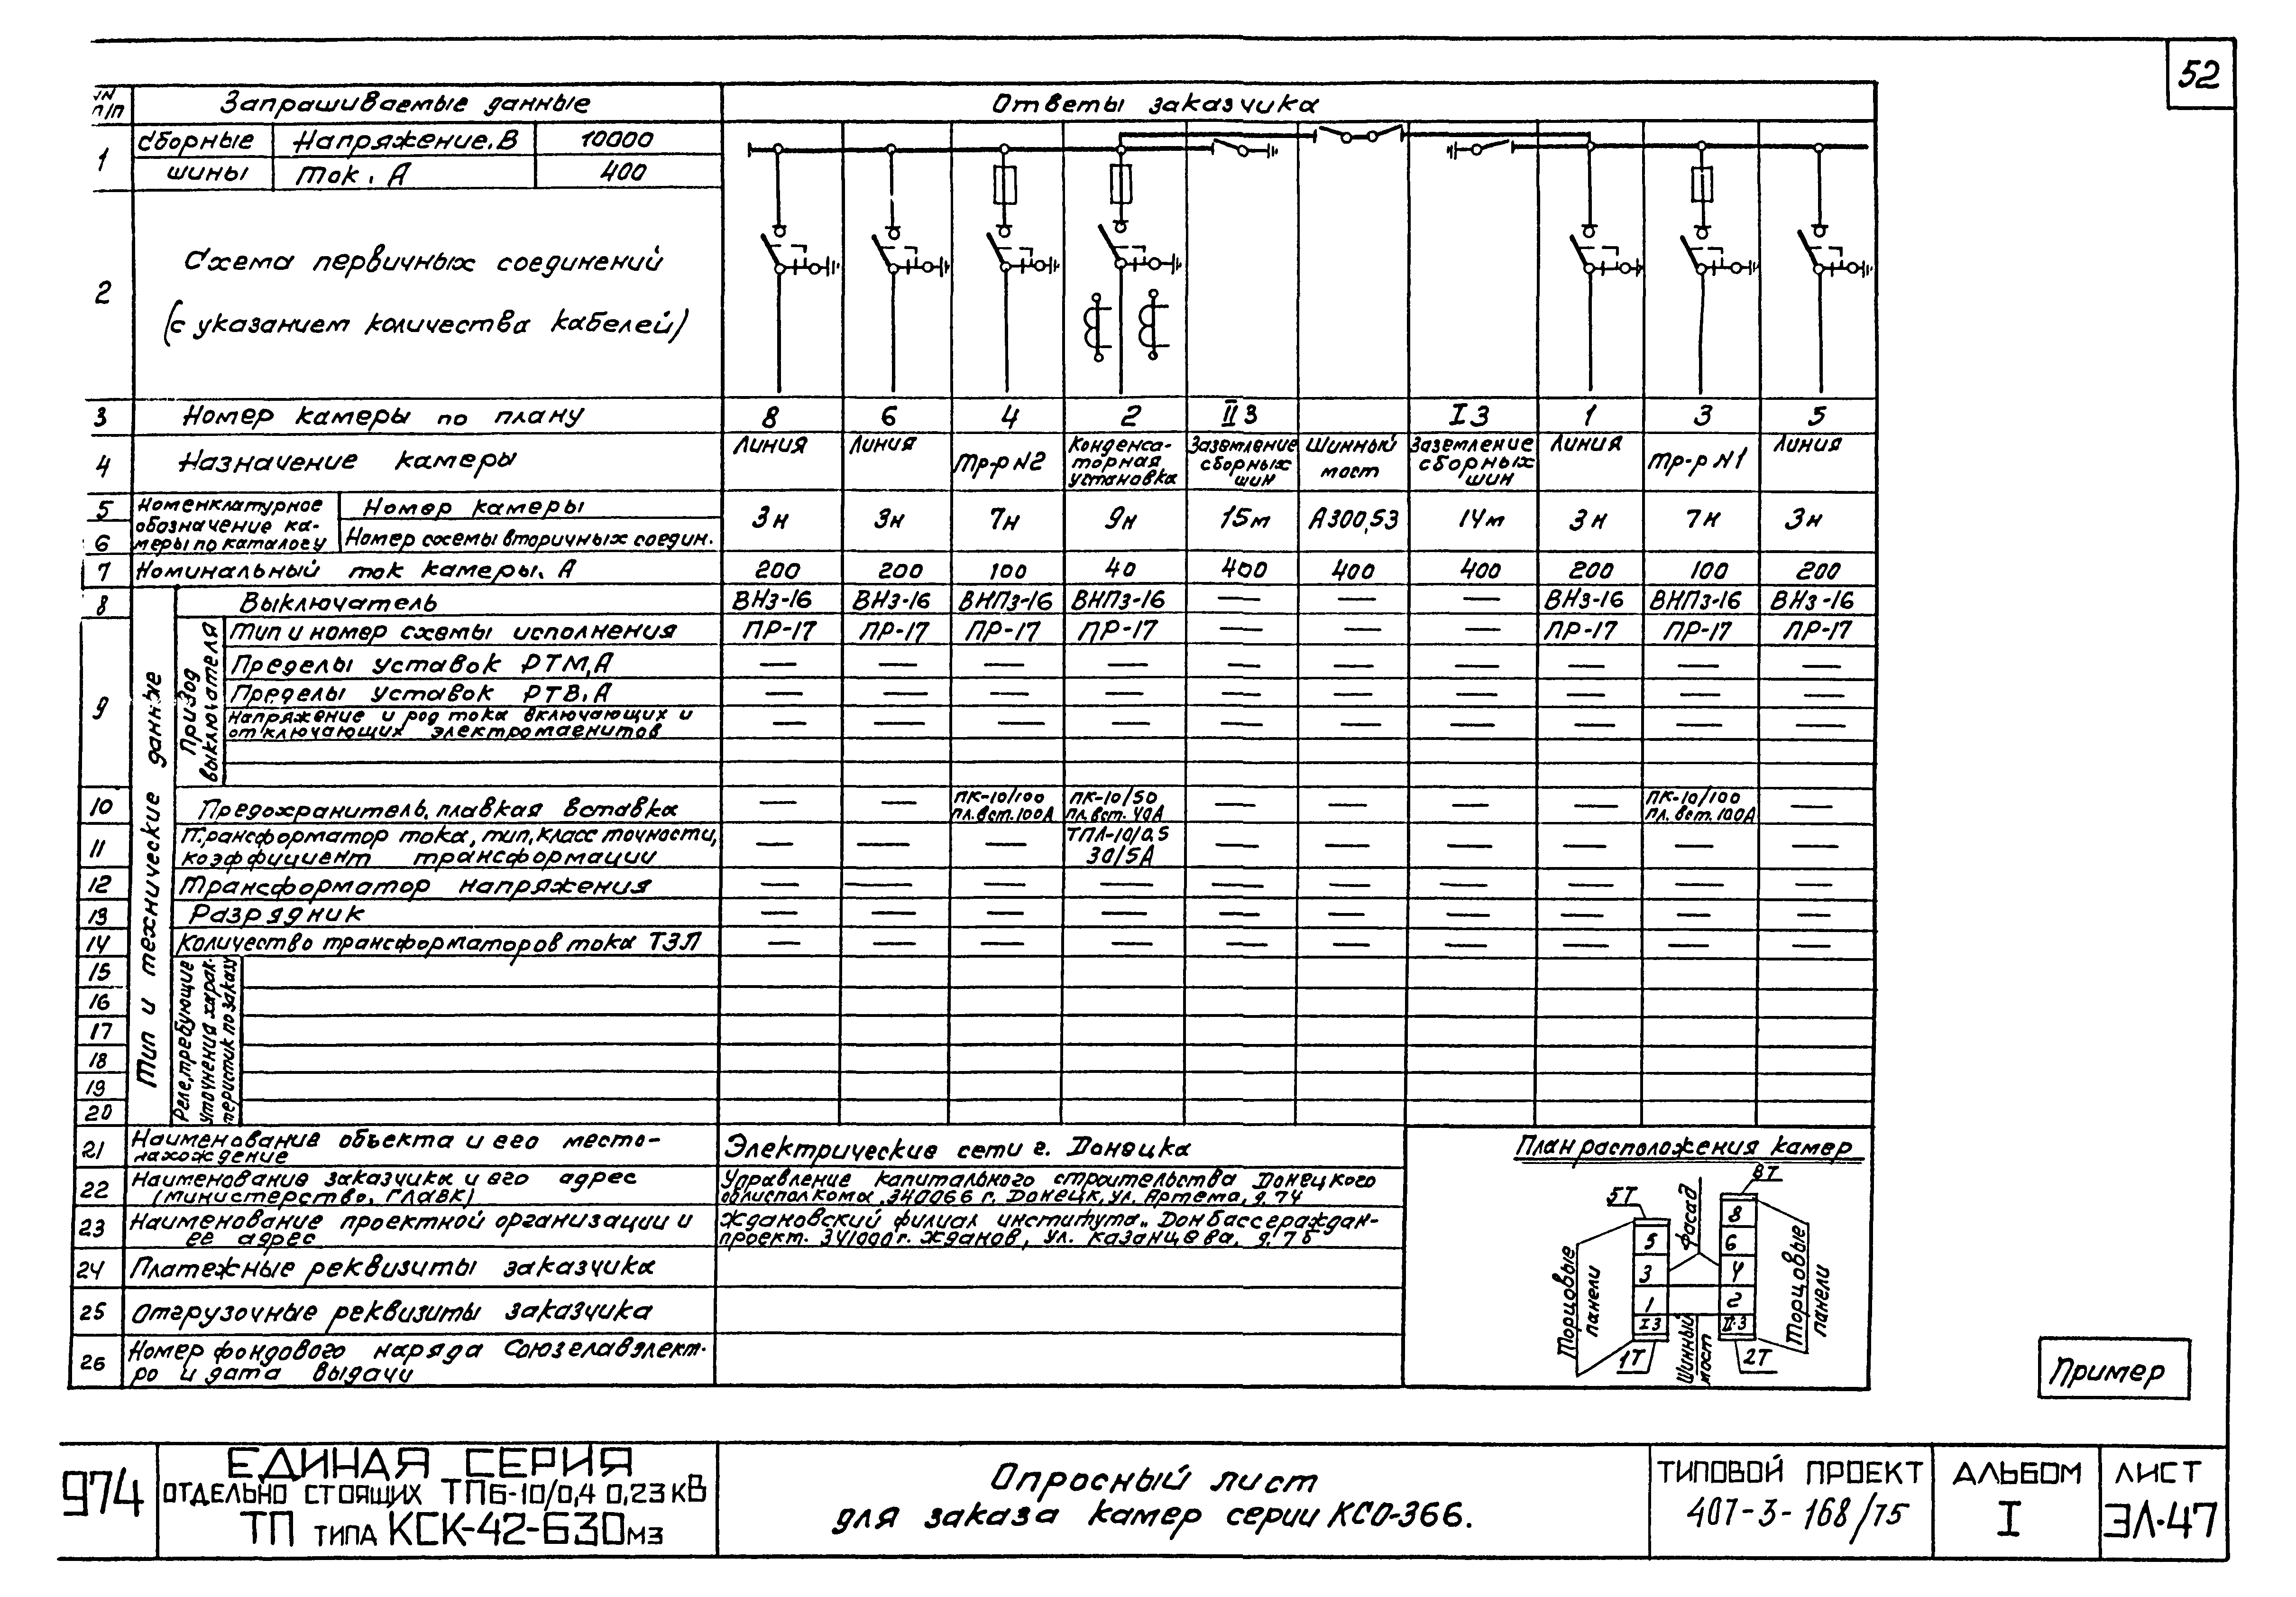 52
№№ п/п Запрашиваемые данные Ответы заказчика
1 Сборные шины Напряжение, В 10000
Ток, А 400
2 Схема первичных соединений
(с указанием количества кабелей)
3 Номер камеры по плану 8 6 4 2 II З I З 1 3 5
4 Назначение камеры Линия Линия Тр-р №2 Конденса-торная установка Заземление сборных шин Шинный мост Заземление сборных шин Линия Тр-р №1 Линия
5 Номенклатурное обозначение ка-меры по каталогу Номер камеры 3н 3н 7н 9н 15м А300,53 14м 3н 7н 3н
6 Номер схемы вторичных соедин.
7 Номинальный ток камеры, А 200 200 100 40 400 400 400 200 100 200
Тип и технические данные
8 Выключатель ВНз-16 ВНз-16 ВНПз-16 ВНПз-16 — — — ВНз-16 ВНПз-16 ВНз-16
9 Привод выключателя
Тип и номер схемы исполнения ПР-17 ПР-17 ПР-17 ПР-17 — — — ПР-17 ПР-17 ПР-17
Пределы уставок РТМ, А — — — — — — — — — —
Пределы уставок РТВ, А — — — — — — — — — —
Напряжение и род тока включающих и отключающих электромагнитов — — — — — — — — — —
10 Предохранитель, плавкая вставка — — ПК-10/100 пл. вст. 100А ПК-10/50 пл. вст. 40А — — — — ПК-10/100 пл. вст. 100А —
11 Трансформатор тока, тип, класс точности, коэффициент трансформации — — — ТПЛ-10/0,5 30/5А — — — — — —
12 Трансформатор напряжения — — — — — — — — — —
13 Разрядник — — — — — — — — — —
14 Количество трансформаторов тока ТЗЛ — — — — — — — — — —
Реле, требующие уточнения харак-теристик по заказу
15
16
17
18
19
20
21 Наименование объекта и его место-нахождение Электрические сети г. Донецка
22 Наименование заказчика и его адрес (министерство, главк) Управление капитального строительства Донецкого облисполкома, 340066 г. Донецк, ул. Артема, д. 74
23 Наименование проектной организации и ее адрес Ждановский филиал института „Донбассграждан-проект. 341000 г. Жданов, ул. Казанцева, д. 7б
24 Платежные реквизиты заказчика
25 Отгрузочные реквизиты заказчика
26 Номер фондового наряда Союзглавэлект-ро и дата выдачи
План расположения камер
5Т 8Т
Фасад
5 3 1 I З
8 6 4 2 II З
Торцовые панели
Торцовые панели
1Т 2Т
Шинный мост
Пример
974
ЕДИНАЯ СЕРИЯ
ОТДЕЛЬНО СТОЯЩИХ ТП6-10/0,4 0,23 кВ
ТП ТИПА КСК-42-630м3
Опросный лист
для заказа камер серии КСО-366.
ТИПОВОЙ ПРОЕКТ
407-3-168/75
АЛЬБОМ
I
ЛИСТ
ЭЛ-47